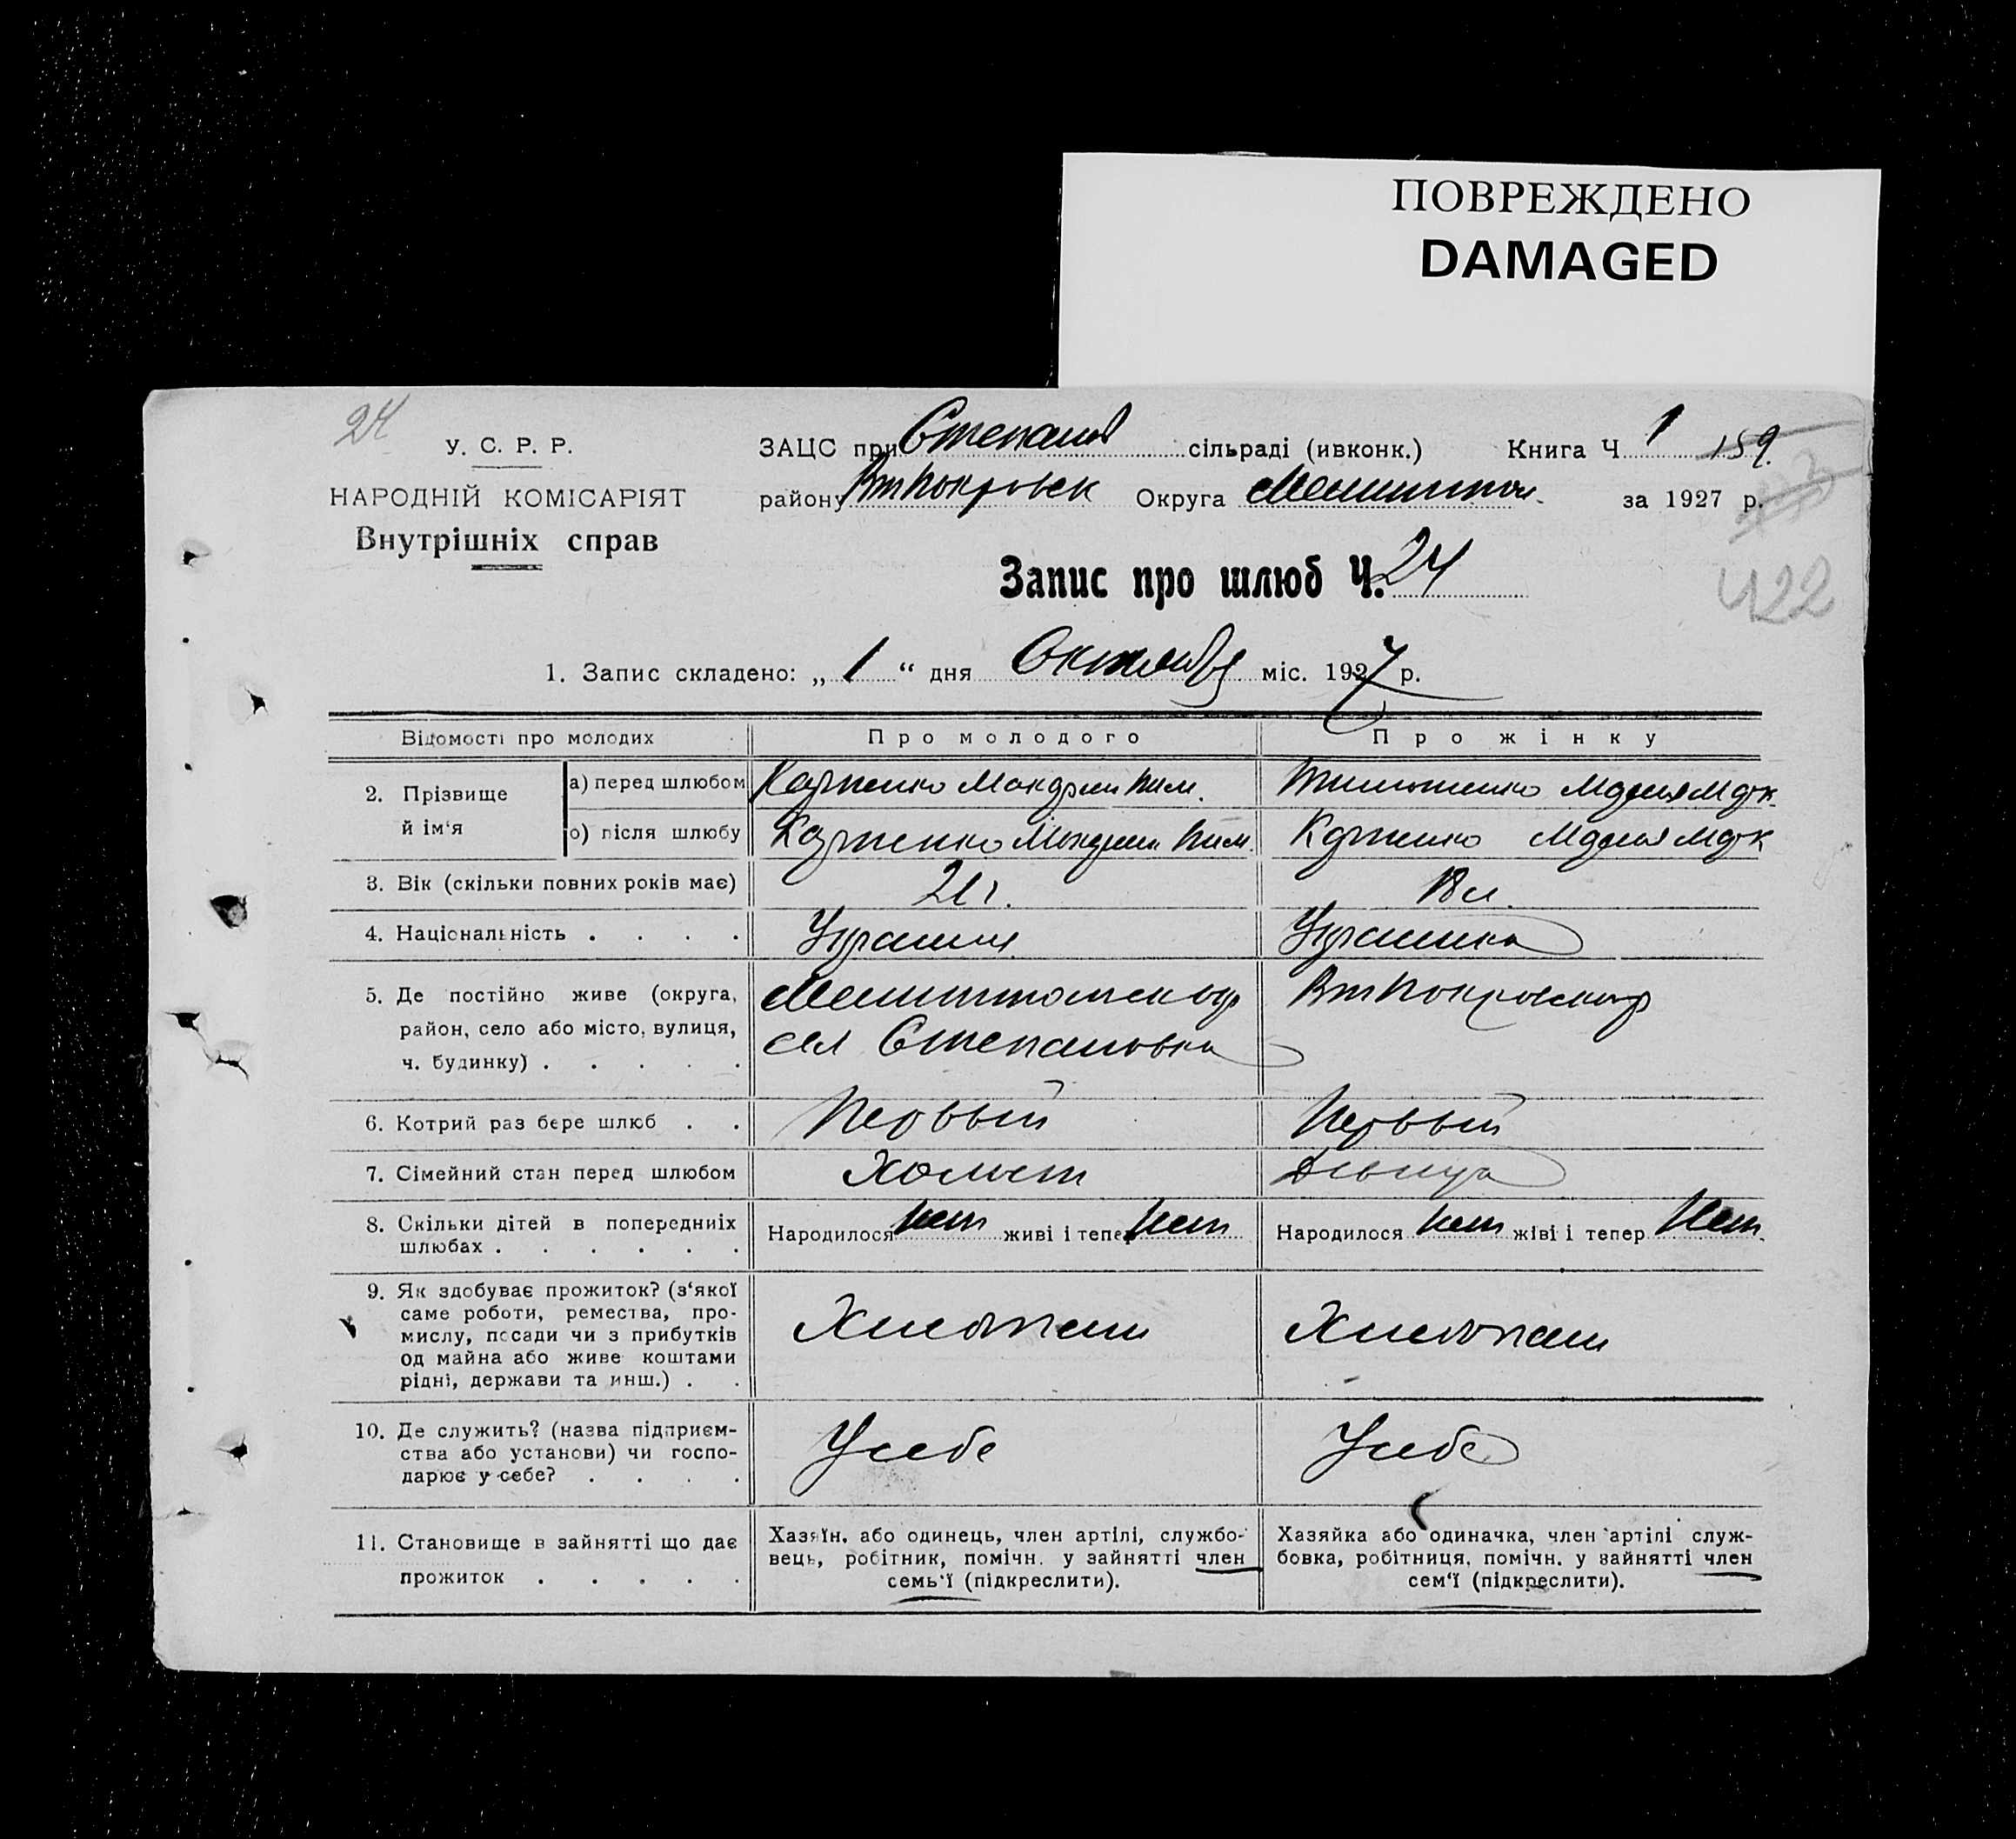 ПОВРЕЖДЕНО
DAMAGED
24
У. С. Р. Р.
НАРОДНІЙ КОМІСАРІЯТ
Внутрішніх справ
ЗАЦС при Степанов сільраді (ивконк.) Книга Ч 1 159
району Втпокровск Округа за 1927 р.
Запис про шлюб Ч. 24
422
1. Запис складено: „ 1 “ дня Октября міс. 1927 р.
Відомості про молодих Про молодого Про жінку
2. Прізвище й ім‘я
а) перед шлюбом
о) після шлюбу
3. Вік (скільки повних років має) 21 г. 18 л.
4. Національність . . . . Украинка
5. Де постійно живе (округа,
район, село або місто, вулиця,
ч. будинку) . . . . .
сел Степановка
6. Котрий раз бере шлюб . . Первый Первый
7. Сімейний стан перед шлюбом Холост Девица
8. Скільки дітей в попередниіх
шлюбах . . . . . .
Народилося нет живі і тепер нет
Народилося нет жіві і тепер нет
9. Як здобуває прожиток? (з‘якої
саме роботи, ремества, про-
мислу, посади чи з прибутків
од майна або живе коштами
рідні, держави та инш.) . .
Хлебопаш Хлебопаш
10. Де служить? (назва підприєм-
ства або установи) чи госпо-
дарює у себе? . . . .
У себе У себе
11. Становище в зайнятті що дає
прожиток . . . . .
Хазяїн, або одинець, член артілі, службо-
вець, робітник, помічн. у зайнятті член
семь‘ї (підкреслити).
Хазяйка або одиначка, член артілі служ-
бовка, робітниця, помічн. у зайнятті член
сем‘ї (підкреслити).